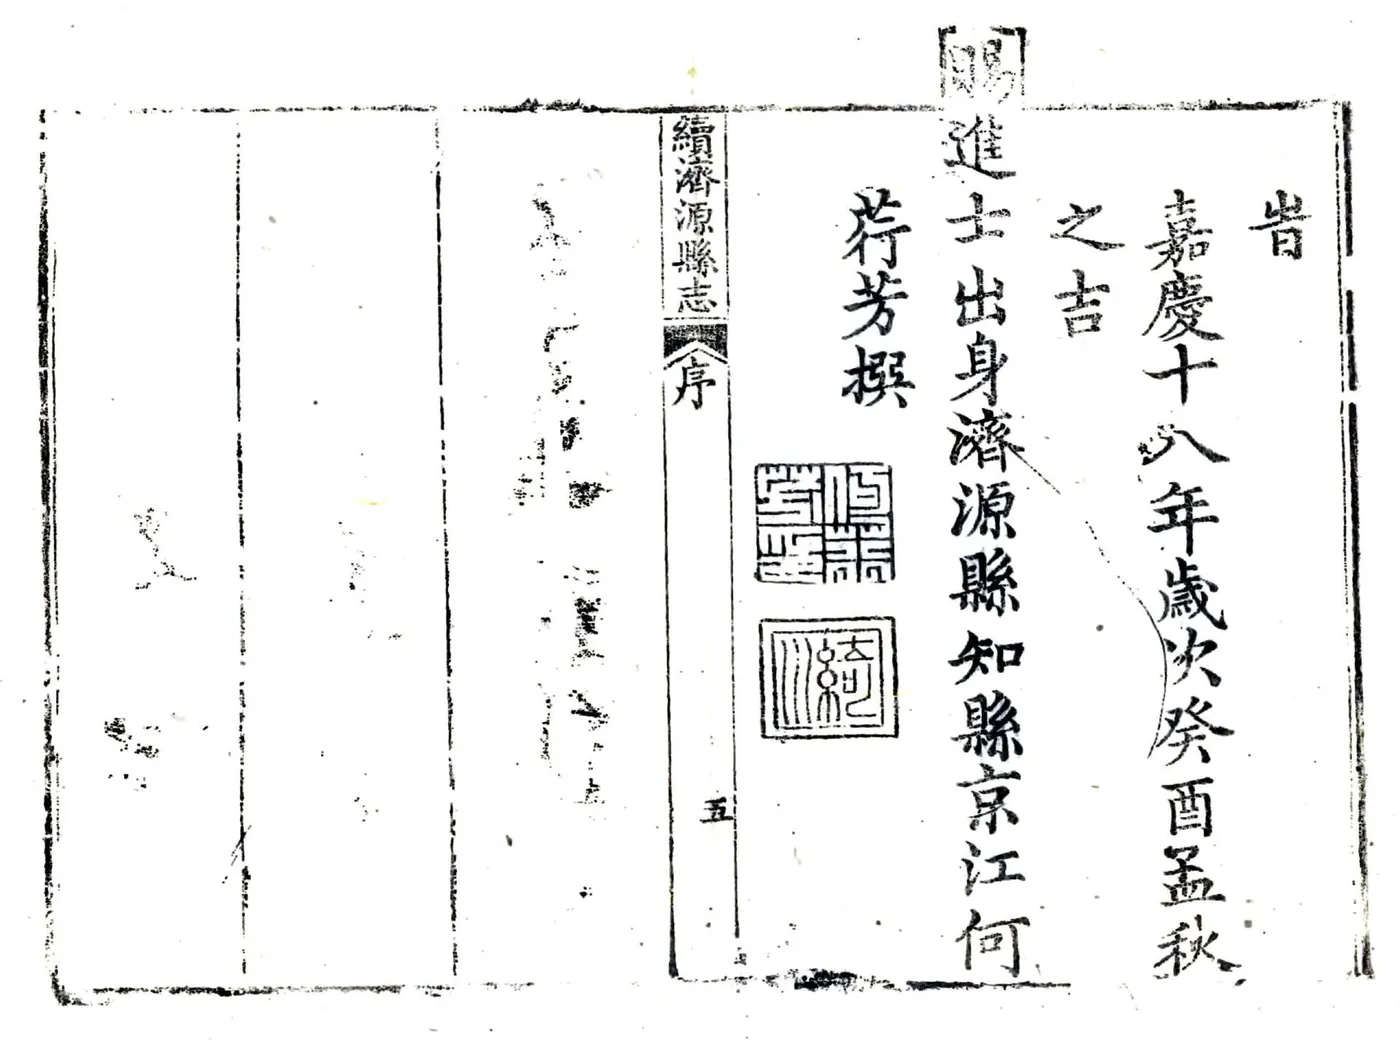 旹
嘉慶十八年歲次癸酉孟秋
之吉
賜進士出身濟源縣知縣京江何
荇芳撰
何荇芳印
綺川
續濟源縣志
序
五